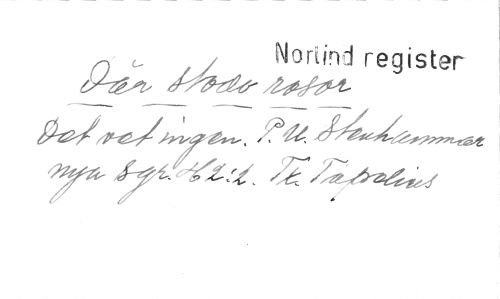 Norlind register
Där stodo rosor
Det vet ingen. P. U. Stenhammar
nya Sgr. H2:2. Tx. Topelius